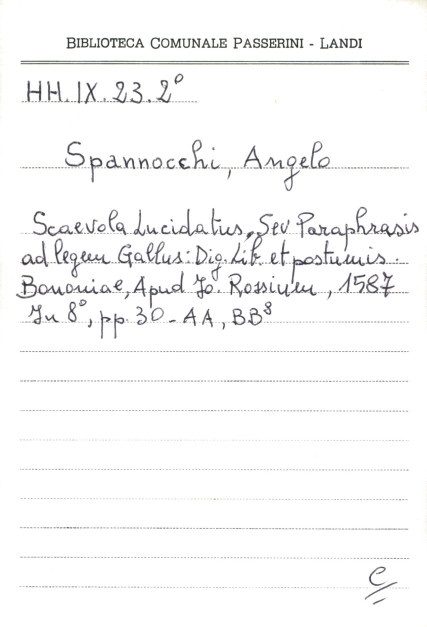 BIBLIOTECA COMUNALE PASSERINI - LANDI
HH.IX.23.2°
Spannocchi, Angelo
Scaevola Lucidatius, Sev Paraphrasis
ad legem Gallus: Dig. Lib. et postumis.
Bononiae, Apud Jo. Rossium, 1587
In 8°, pp. 30 - AA, BB⁸
C